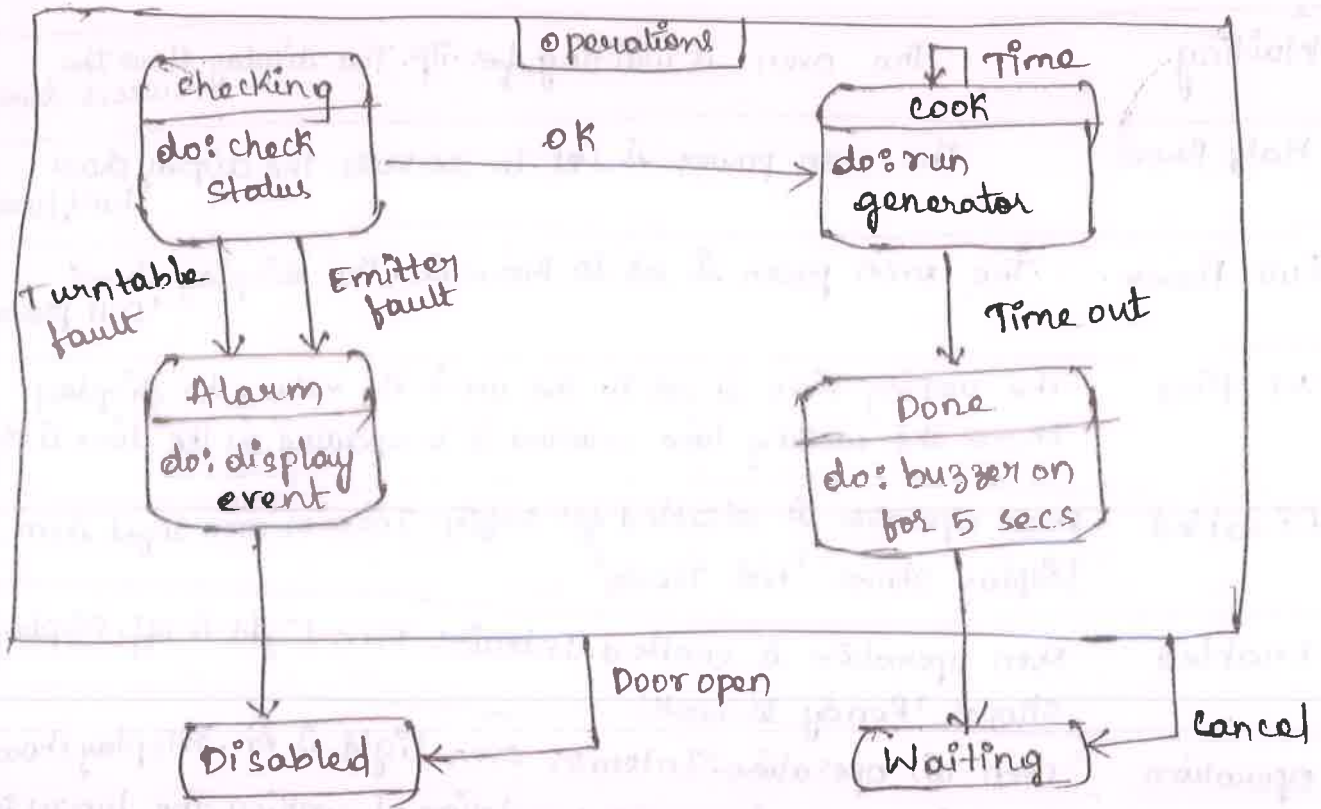 Operations
Time
checking
cook
do: check
status
OK
do: run
generator
Turntable
fault
Emitter
fault
Time out
Alarm
do: display
event
Done
do: buzzer on
for 5 secs
Door open
Cancel
Disabled
Waiting